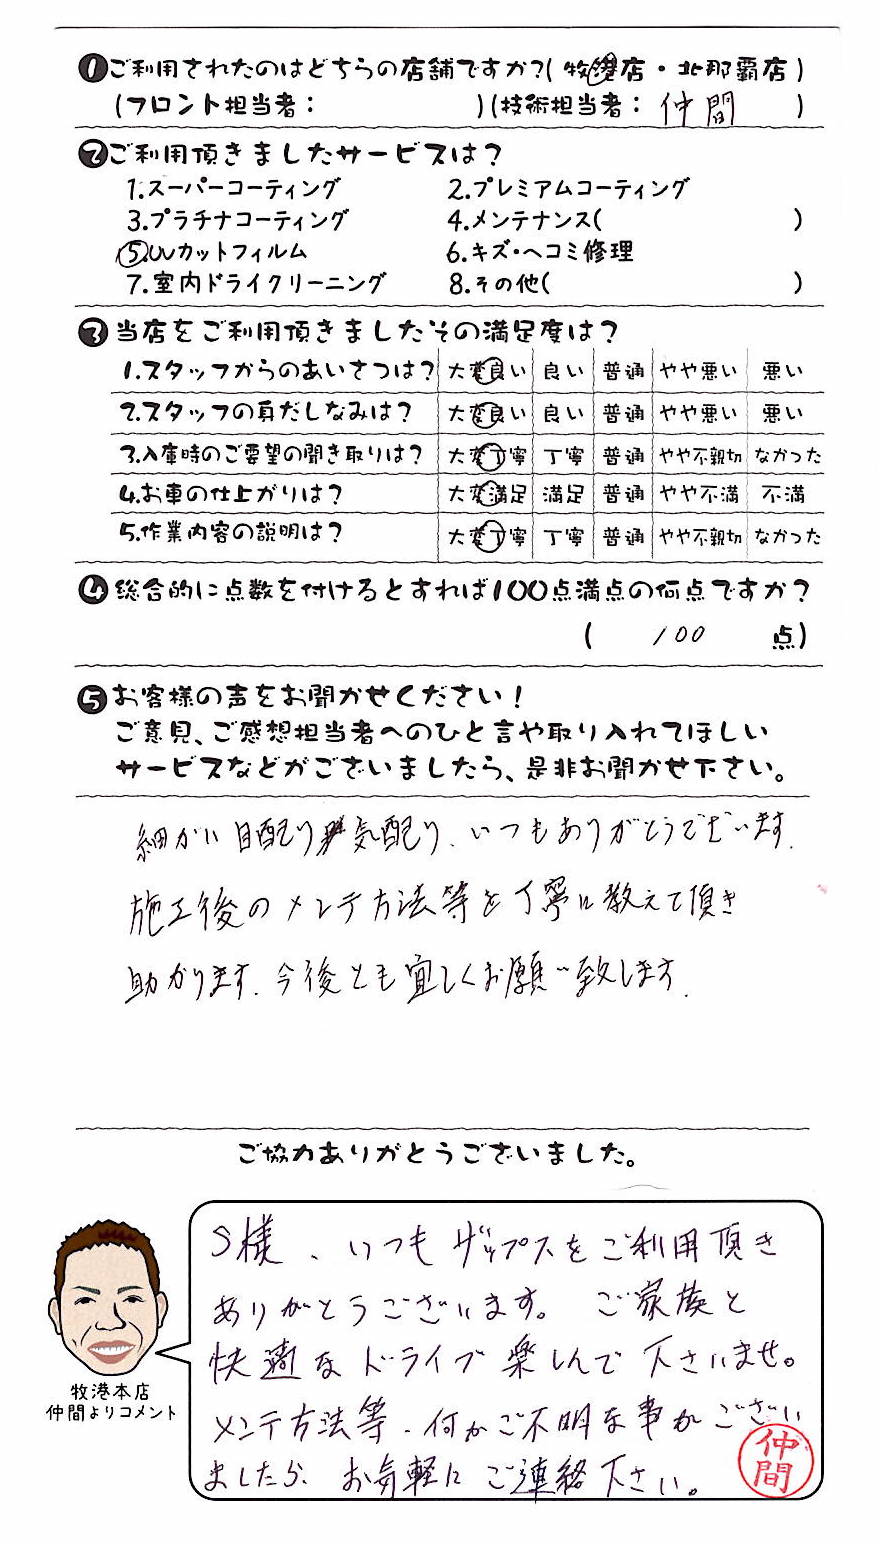 ❶ご利用されたのはどちらの店舗ですか?(牧港店・北那覇店)
(フロント担当者: )(技術担当者: 仲間 )
❷ご利用頂きましたサービスは?
1.スーパーコーティング 2.プレミアムコーティング
3.プラチナコーティング 4.メンテナンス( )
5.UVカットフィルム 6.キズ・ヘコミ修理
7.室内ドライクリーニング 8.その他( )
❸当店をご利用頂きましたその満足度は?
1.スタッフからのあいさつは? 大変良い 良い 普通 やや悪い 悪い
2.スタッフの身だしなみは? 大変良い 良い 普通 やや悪い 悪い
3.入庫時のご要望の聞き取りは? 大変丁寧 丁寧 普通 やや不親切 なかった
4.お車の仕上がりは? 大変満足 満足 普通 やや不満 不満
5.作業内容の説明は? 大変丁寧 丁寧 普通 やや不親切 なかった
❹総合的に点数を付けるとすれば100点満点の何点ですか?
( 100 点)
❺お客様の声をお聞かせください!
ご意見、ご感想担当者へのひと言や取り入れてほしい
サービスなどがございましたら、是非お聞かせ下さい。
細かい目配り気配り、いつもありがとうございます.
施工後のメンテ方法等を丁寧に教えて頂き
助かります.今後とも宜しくお願い致します.
ご協力ありがとうございました。
S様、いつもザップスをご利用頂き
ありがとうございます。ご家族と
快適なドライブ楽しんで下さいませ。
メンテ方法等、何かご不明な事がござい
ましたら、お気軽にご連絡下さい。
仲間
牧港本店
仲間よりコメント